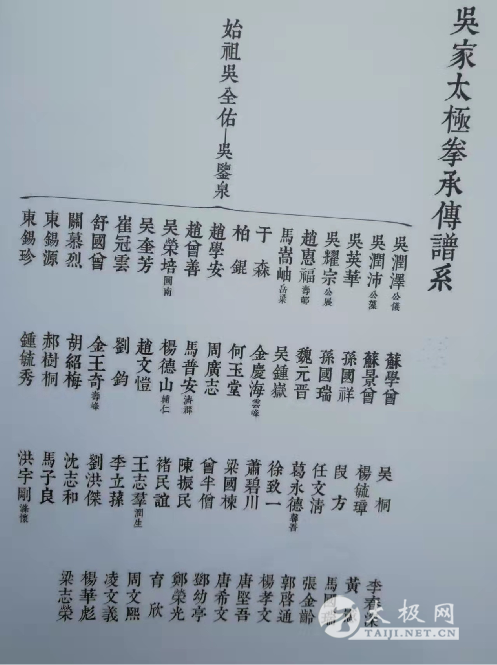 吳家太極拳承傳譜系
始祖吳全佑—吳鑒泉
吳潤澤公儀
吳潤沛公藻
吳英華
吳耀宗公展
趙惠福壽邨
馬嵩岫岳梁
于森
柏錕
趙學安
趙曾善
吳榮培圖南
吳奎芳
崔冠雲
舒國曾
關慕烈
東錫源
東錫珍
蘇學曾
蘇景曾
孫國祥
孫國瑞
魏元晋
吳鍾嶽
金慶海雲峰
何玉堂
周廣志
馬普安濟群
楊德山輔仁
趙文愷
劉鈞
金王奇壽峰
胡紹梅
郝樹桐
鍾毓秀
吴桐
楊毓璋
段方
任文清
葛永德馨吾
徐致一
蕭碧川
梁國棟
曾半僧
陳振民
褚民誼
王志羣潤生
李立蓀
劉洪傑
沈志和
馬子良
洪宇剛
李春
黃
馬
張金齡
郭啓通
楊孝文
唐堅吾
唐希文
鄧幼亭
鄭榮光
育欣
周文熙
凌文義
楊華彪
梁志榮
太极网
TAIJI.NET.CN